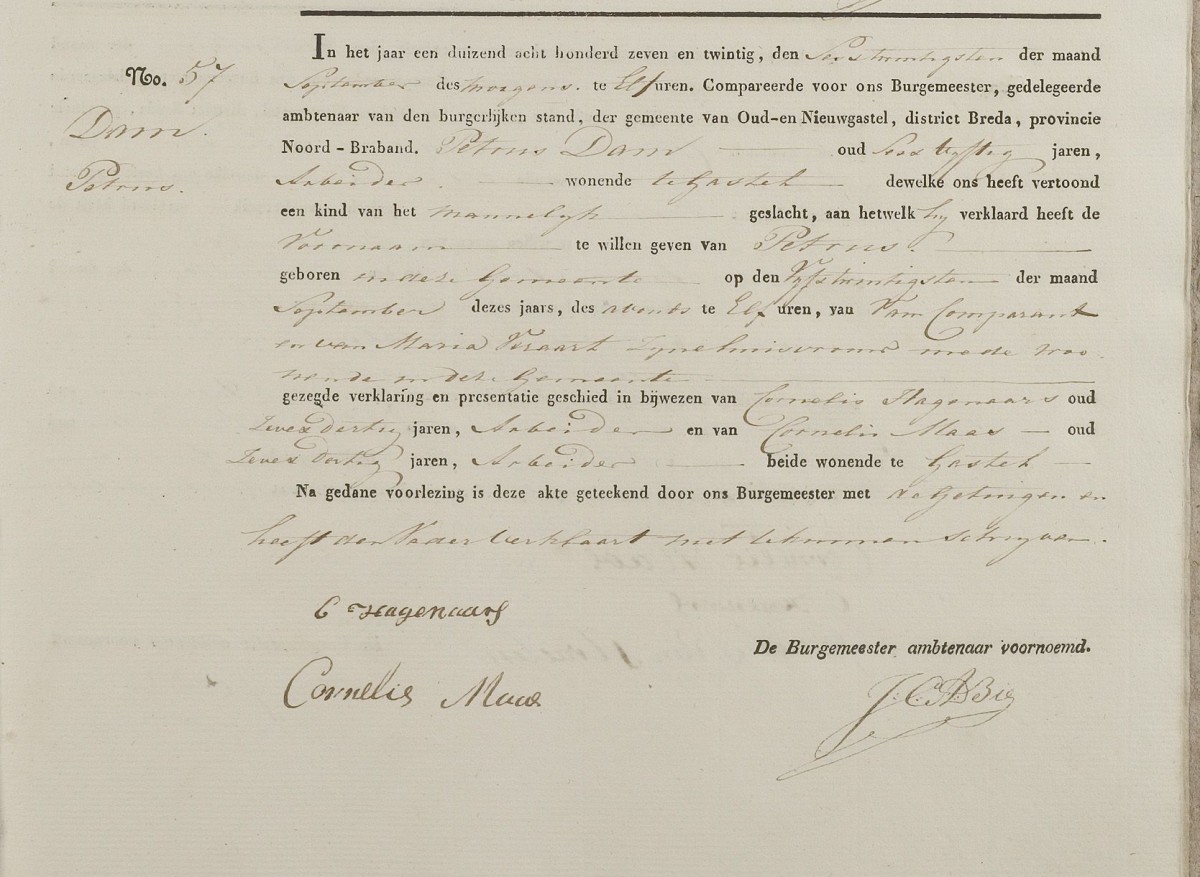 In het jaar een duizend acht honderd zeven en twintig, den Sesstwintigsten der maand
No. 57
September des morgens. te Elf uren. Compareerde voor ons Burgemeester, gedelegeerde
ambtenaar van den burgerlijken stand, der gemeente van Oud-en Nieuwgastel, district Breda, provincie
Dam.
Noord-Braband. Petrus Dam oud jaren,
Petrus.
Arbeider. wonende te Gastel dewelke ons heeft vertoond
een kind van het mannelyk geslacht, aan hetwelk hy verklaard heeft de
Voornaam te willen geven van Petrus.
geboren in deze Gemeente op den Vyfstwintigsten der maand
September dezes jaars, des avonds te Elf uren, van Vam Comparant
en van Maria Veraart Zynelhuisvrouw mede woo
nende in deze Gemeente
gezegde verklaring en presentatie geschied in bijwezen van Cornelis Hagenaars oud
jaren, Arbeider en van Cornelis Maas oud
jaren, Arbeider beide wonende te Gastel
Na gedane voorlezing is deze akte geteekend door ons Burgemeester met de Getuigen en
heeft den Vader Verklaart niet te kunnen schryven.
C Hagenaars
De Burgemeester ambtenaar voornoemd.
Cornelis Maas